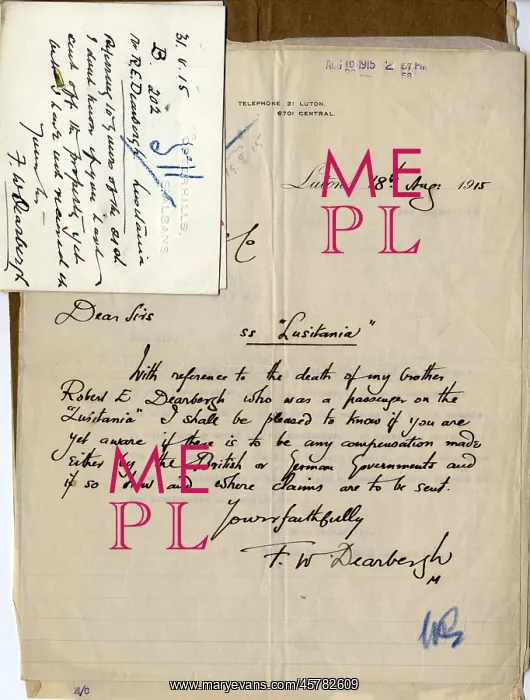 AUG 19 1915
TELEPHONE 21 LUTON.
6701 CENTRAL.
Luton 18th Aug: 1915
& Co
Dear Sirs
ss "Lusitania"
With reference to the death of my brother
Robert E Dearbergh who was a passenger on the
"Lusitania" I shall be pleased to know if you are
yet aware if there is to be any compensation made
either by the British or German Governments and
if so how and where claims are to be sent.
Yours faithfully
F. W. Dearbergh
31.V.15
B. 202
Mr R.E. Dearbergh Lusitania
Referring to yours of the 22nd
I dont know if you have
sent off the property yet
but I have not received it
Yours try
F. W. Dearbergh
ST ALBANS.
19.5.15
ME
PL
ME
PL
A/C
www.maryevans.com/45782609